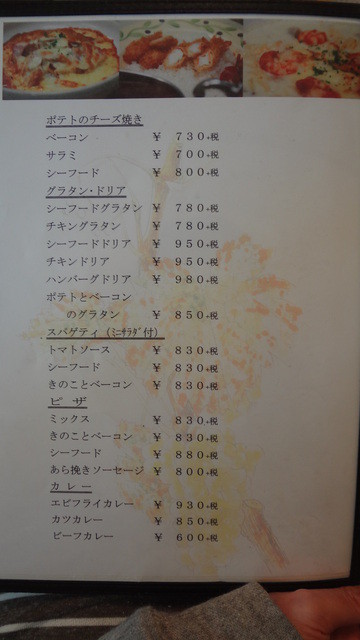 ポテトのチーズ焼き
ベーコン ￥ 730+税
サラミ ￥ 700+税
シーフード ￥ 800+税
グラタン・ドリア
シーフードグラタン ￥ 780+税
チキングラタン ￥ 780+税
シーフードドリア ￥ 950+税
チキンドリア ￥ 950+税
ハンバーグドリア ￥ 980+税
ポテトとベーコン
のグラタン ￥ 850+税
スパゲティ（ﾐﾆｻﾗﾀﾞ付）
トマトソース ￥ 830+税
シーフード ￥ 830+税
きのことベーコン ￥ 830+税
ピ ザ
ミックス ￥ 830+税
きのことベーコン ￥ 830+税
シーフード ￥ 880+税
あら挽きソーセージ ￥ 800+税
カ レー
エビフライカレー ￥ 930+税
カツカレー ￥ 850+税
ビーフカレー ￥ 600+税